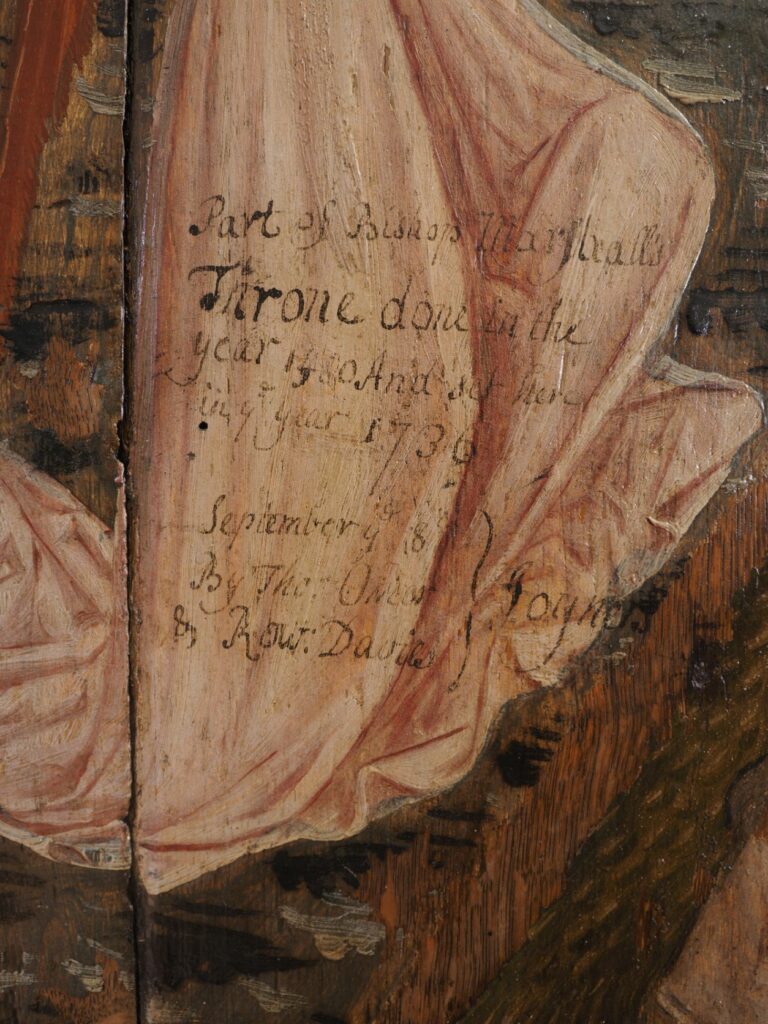 Part of Bishop Marshall's
Throne done in the
year 1480 And set here
in yᵉ year 1736
September yᵉ 8ᵗʰ
By Thoˢ: Omar
& Rowᵈ: Davies } Joyners